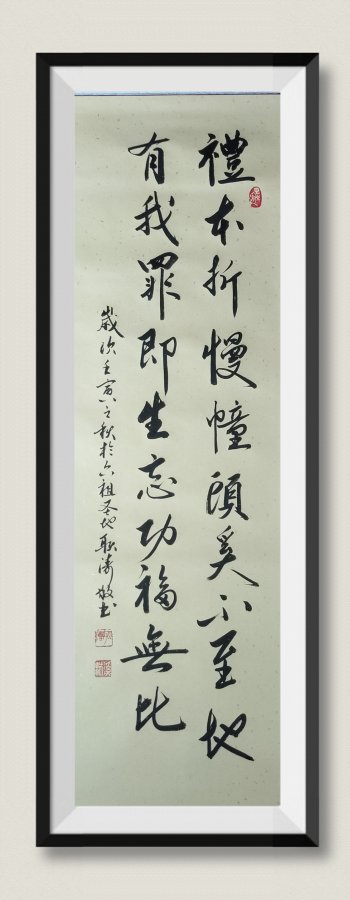 禮本折慢幢頭奚不至地
有我罪即生忘功福無比
歲次壬寅之秋於六祖圣地耿濤敬书